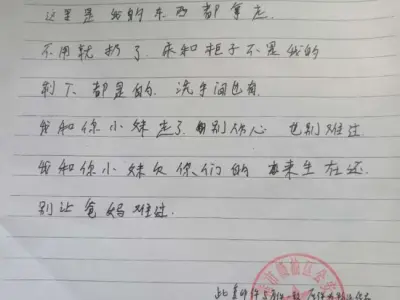 这里是我的东西都拿走
不用就扔了 床和柜子不是我的
剩下都是的. 洗手间也有.
我和你小妹走了 别伤心 也别难过
我和你小妹欠你们的 来生在还.
别让爸妈难过.
此复印件与